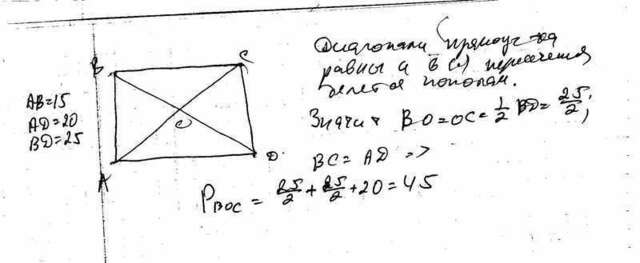 B
C
AB=15
AD=20
BD=25
O
A
D
Диагонали прямоуг-ка
равны и в (·) пересечения
делятся пополам.
Значит BO=OC=1/2 BD=25/2;
BC=AD =>
P_BOC = 25/2+25/2+20=45